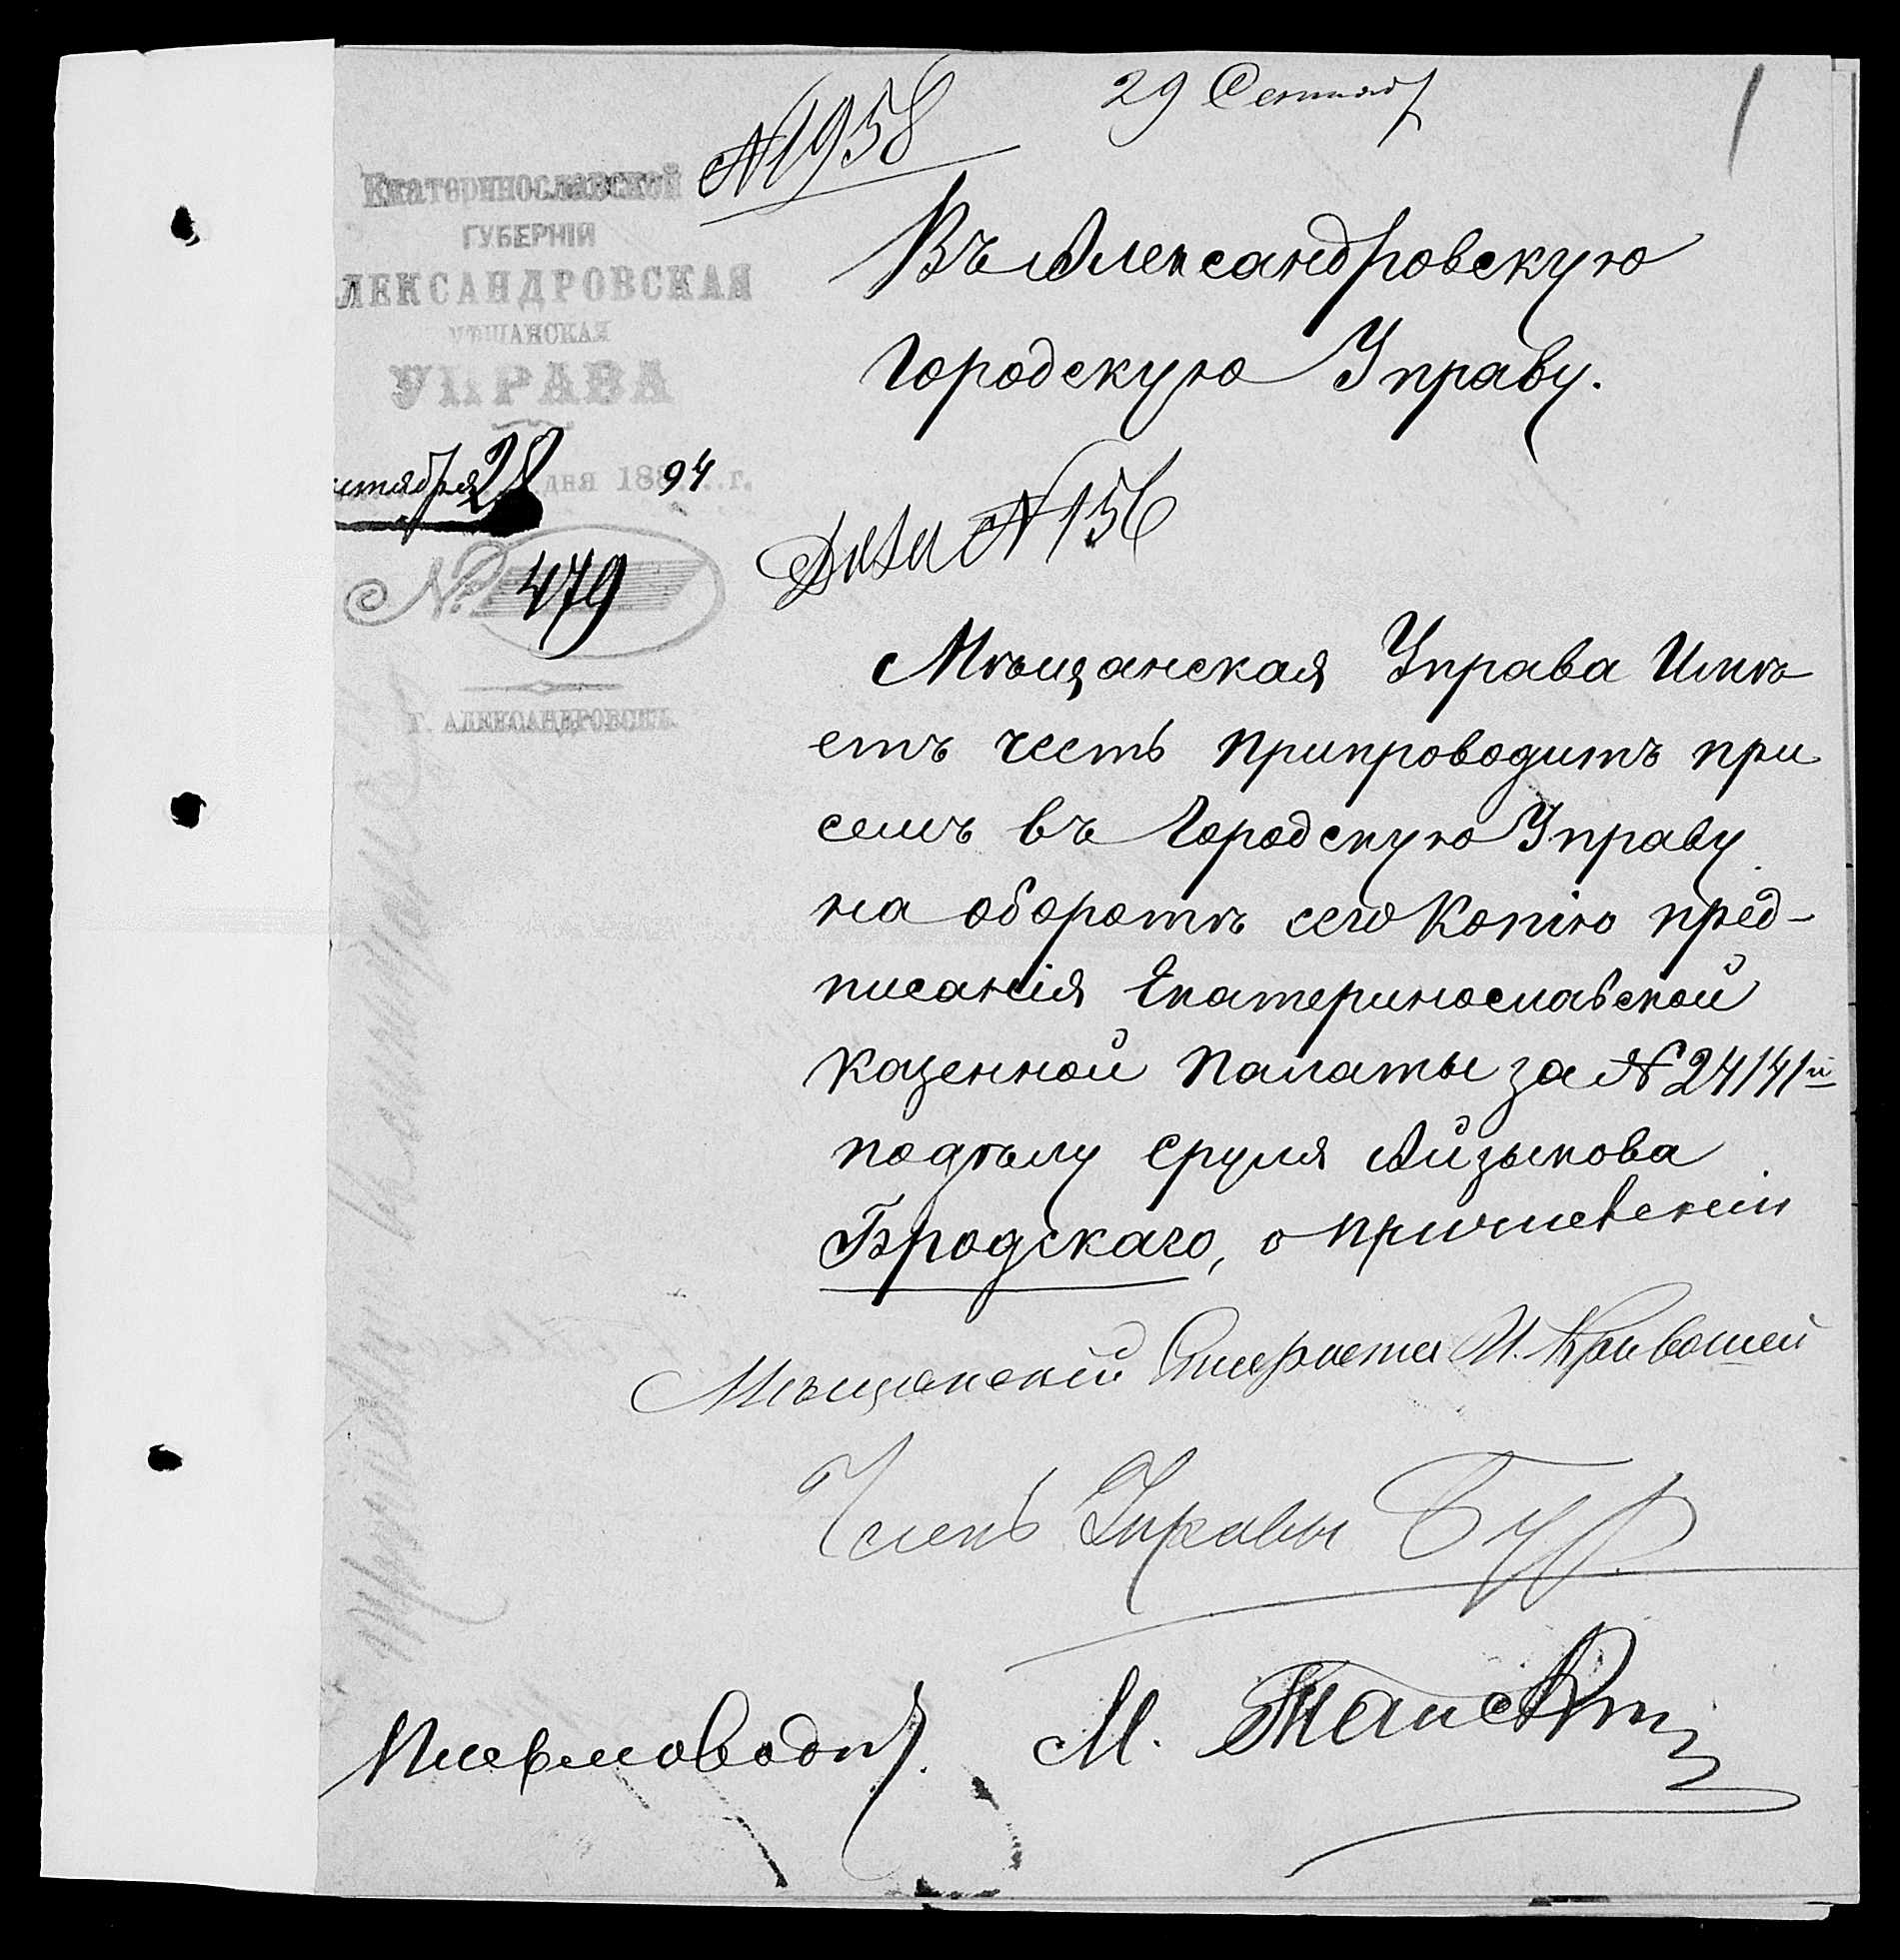 29 Сентяб
1
№1958
Екатеринославской
ГУБЕРНІИ
ЛЕКСАНДРОВСКАЯ
МѢЩАНСКАЯ
УПРАВА
нтября 28 дня 188 94 г.
№ 479
Г. АЛЕКСАНДРОВСКЪ.
Въ Александровскую
Городскую Управу.
Дѣла №156
Мѣщанская Управа Имѣ
етъ честь припроводитъ при
семъ въ Городскую Управу
на оборотѣ сего Копію пред-
писанія Екатеринославской
Казенной Палаты за №24141й
подѣлу Сруля Айзыкова
Бродскаго, о причисленіи
Мѣщанскій Староста И. Кривошей
Членъ Управы
Письмоводит.
М.